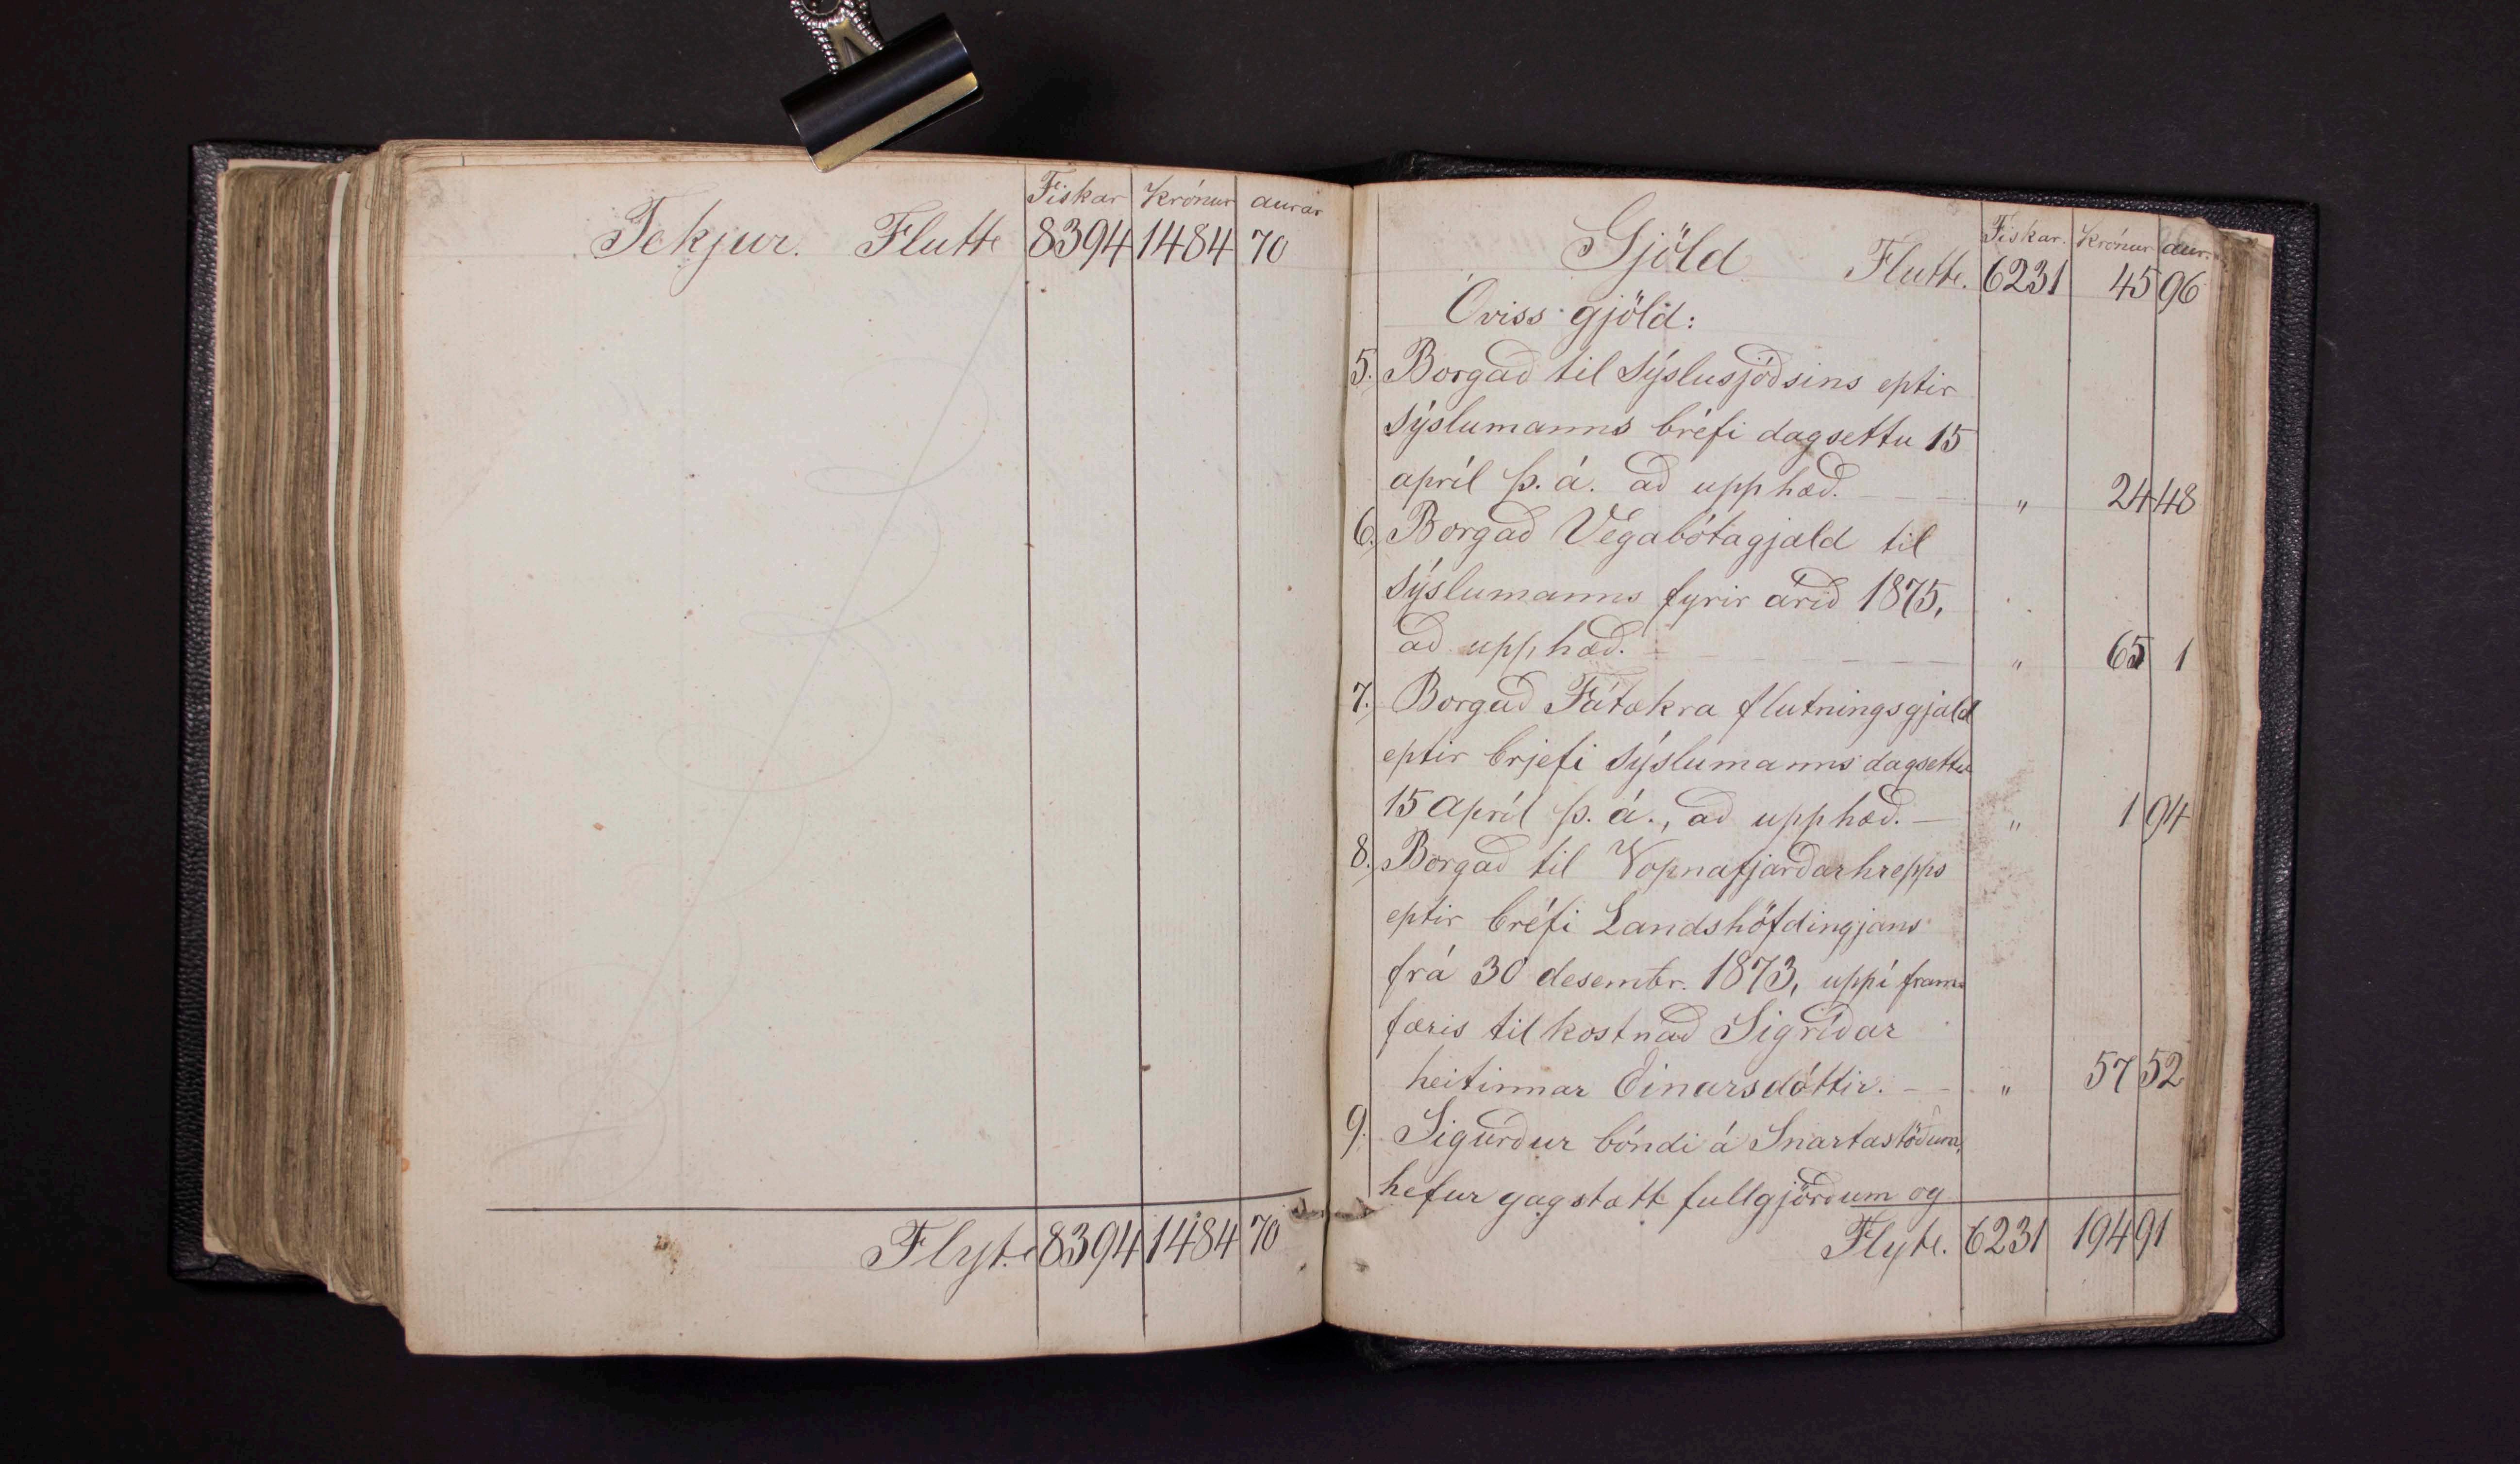 Fiskar Krónur aurar
Tekjur. Flutte 8394 1484 70
Flyt.e 8394 1484 70
Fiskar. Krónur aur.
Gjöld Flutte. 6231 45 96
Óviss gjöld:
5. Borgað til Sýslusjóðsins eptir
Sýslumanns bréfi dagsettu 15
apríl þ. á. að upphæð. " 24 48
6. Borgað Vegabótagjald til
Sýslumanns fyrir árið 1875,
að upphæð. " 65 1
7. Borgað Fátækra flutningsgjald
eptir brjefi Sýslumanns dagsettu
15 apríl þ. á., að upphæð. " 1 94
8. Borgað til Vopnafjarðarhrepps
eptir bréfi Landshöfdingjans
frá 30 desembr. 1873, uppí fram-
færis tilkostnað Sigríðar
heitinnar Einarsdóttir. " 57 52
9. Sigurður bóndi á Snartastöðum,
hefur gagstætt fullgjörðum og
Flyte. 6231 194 91